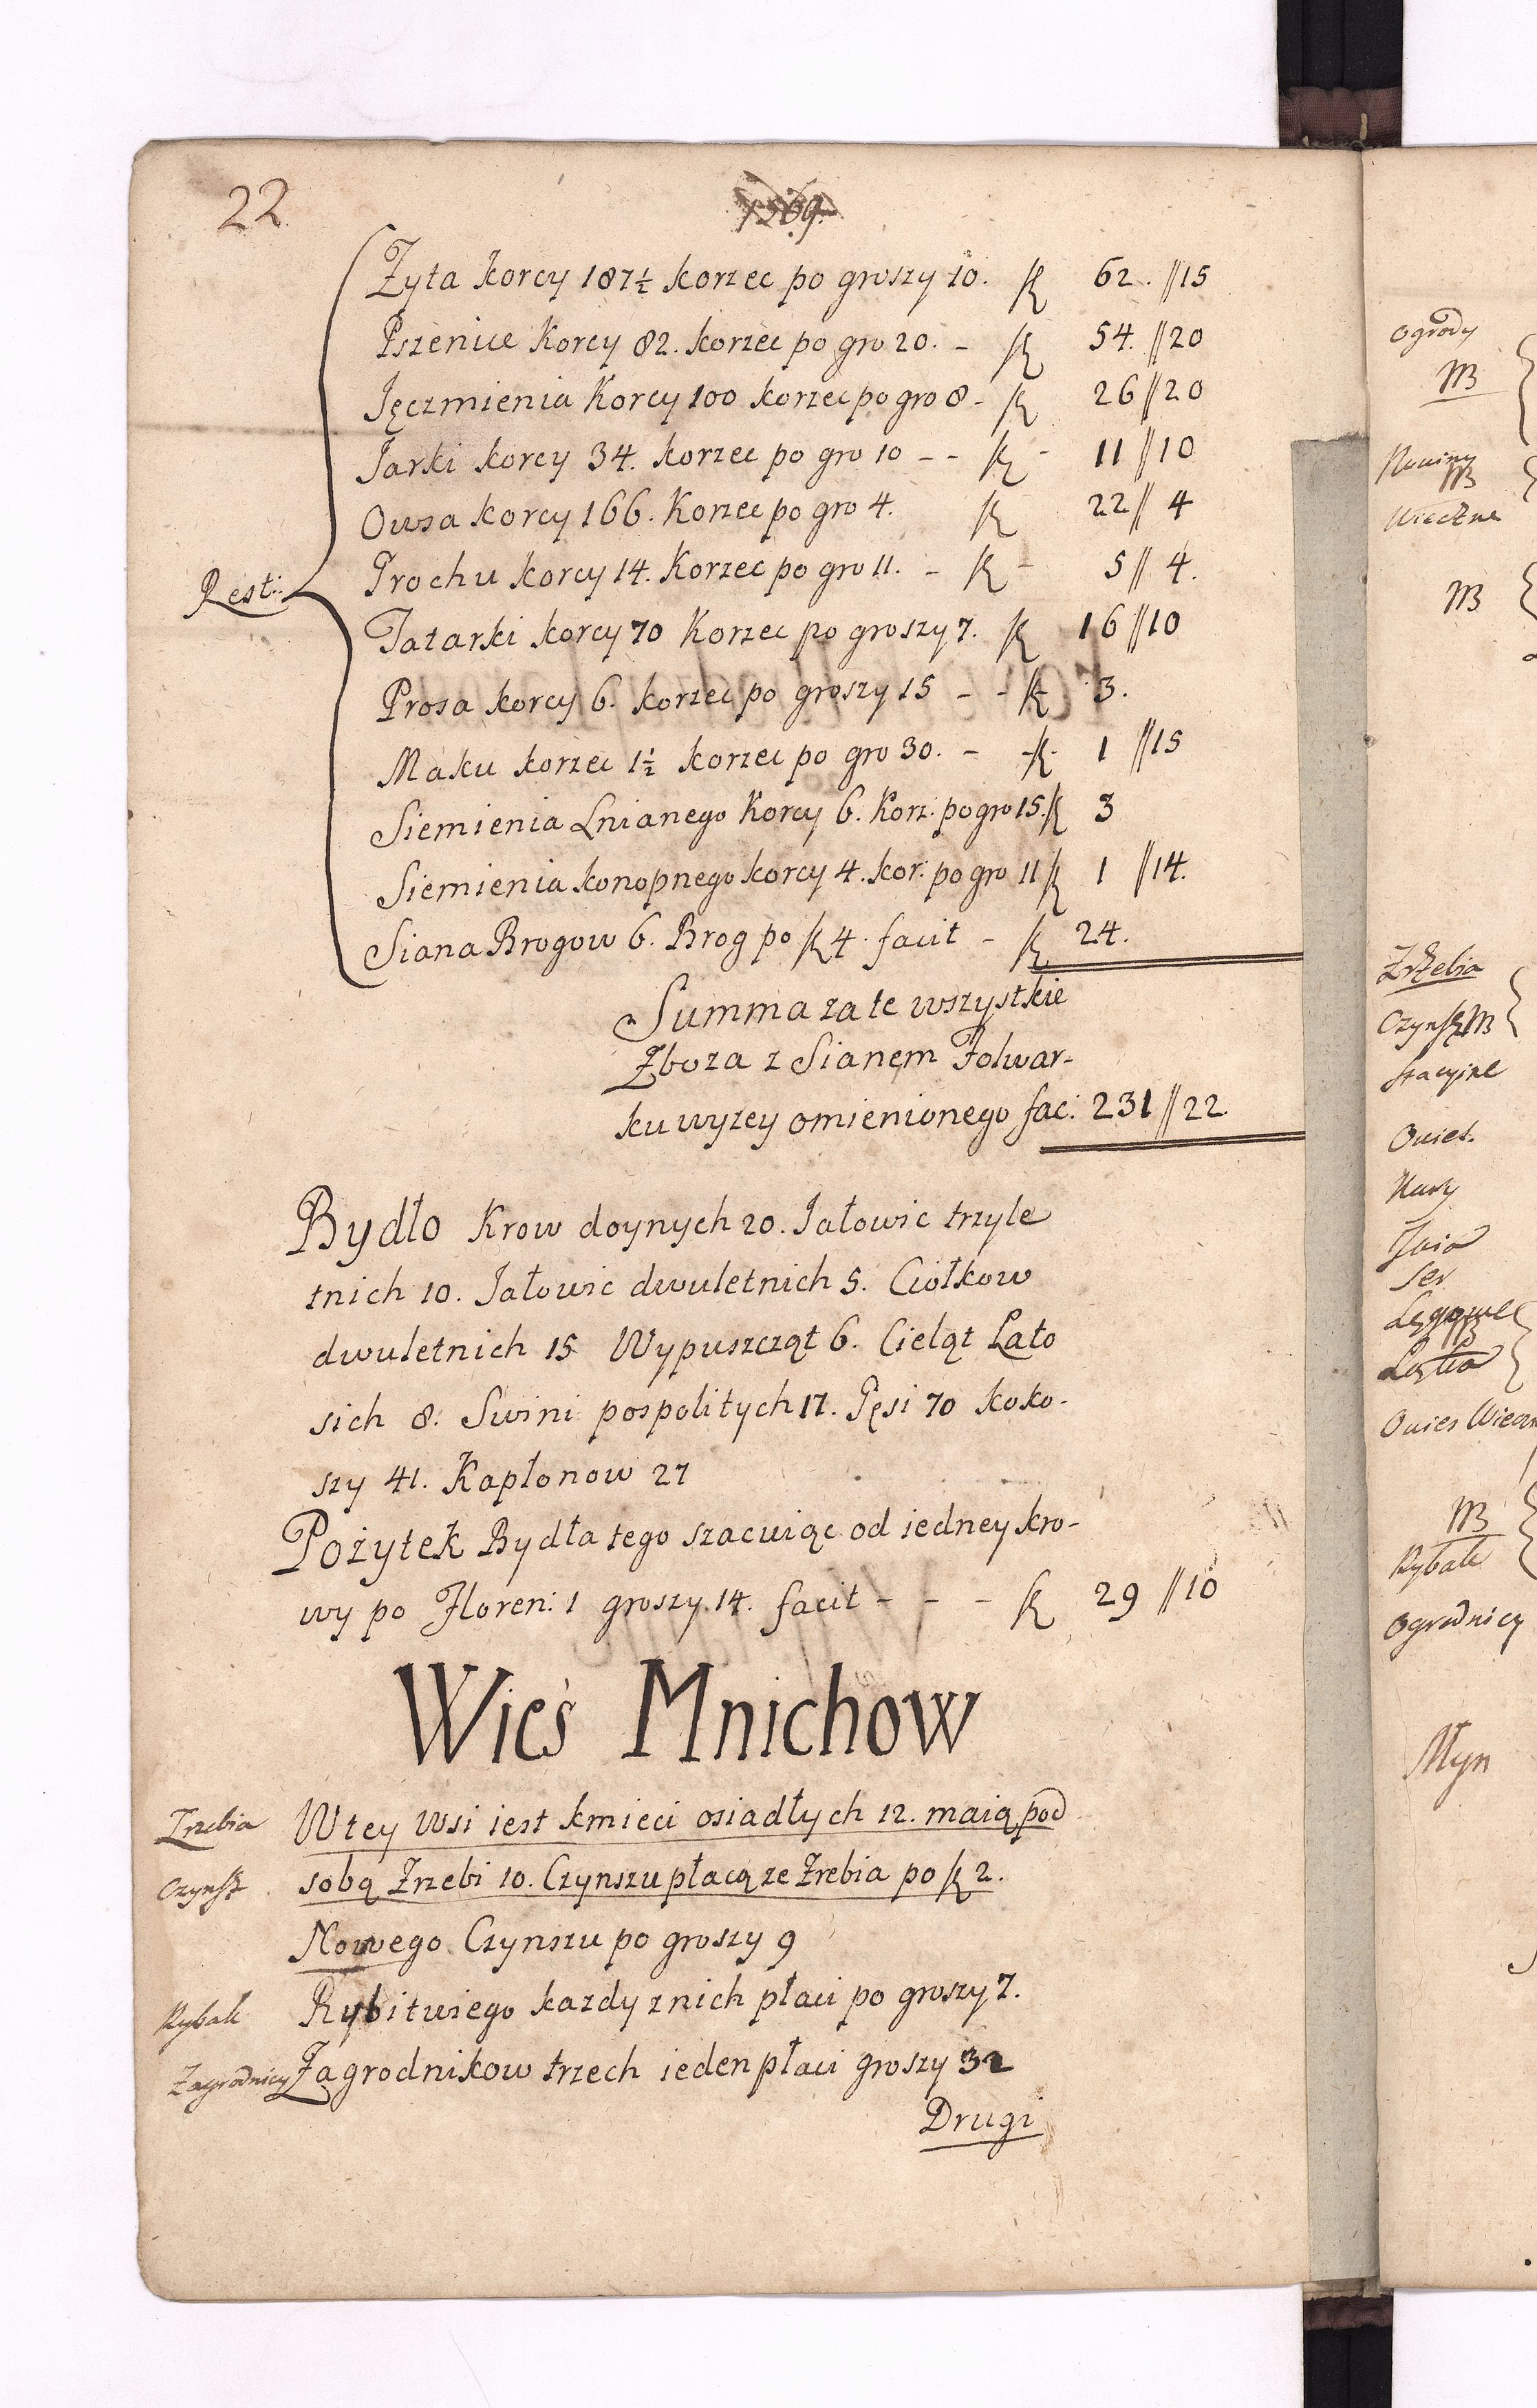 22
1569.
Żyta korcy 187½ korzec po groszy 10. fl 62. //15
Pszenice Korcy 82. korzec po gro 20. - fl 54. //20
Jęczmienia Korcy 100 korzec po gro 8 - fl 26 //20
Jarki korcy 34. korzec po gro 10 - - fl - 11 //10
Owsa korcy 166. Korzec po gro 4. fl 22 // 4
Rest:
Grochu korcy 14. Korzec po gro 11. - fl - 5 // 4.
Tatarki korcy 70 Korzec po groszy 7. fl 16 //10
Prosa korcy 6. korzec po groszy 15 - - fl 3.
Maku korzec 1½ korzec po gro 30. - fl 1 //15
Siemienia Lnianego Korcy 6. Korz. po gro 15. fl 3
Siemienia konopnego korcy 4. kor: po gro 11 fl 1 //14.
Siana Brogow 6. Brog po fl 4. facit - fl 24.
Summa za te wszystkie
Zboza z Sianem Folwar-
ku wyzey omienionego fac: 231 // 22.
Bydło Krow doynych 20. Jałowic trzyle
tnich 10. Jałowic dwuletnich 5. Ciołkow
dwuletnich 15 Wypuszcząt 6. Cieląt Lato
sich 8. Swini pospolitych 17. Gęsi 70 koko-
szy 41. Kapłonow 27
Pożytek Bydła tego szacuiąc od iedney kro-
wy po Floren: 1 groszy 14. facit - - - fl 29 //10
Wieś Mnichow
Zrzebia
W tey Wsi iest kmieci osiadłych 12. maią pod
Czynsz
sobą Zrzebi 10. Czynszu płacą ze Zrebia po fl 2.
Nowego Czynszu po groszy 9
Rybałt
Rybitwiego kazdy z nich płaci po groszy 7.
Zagrodnicy
Zagrodnikow trzech ieden płaci groszy 32
Drugi
Ogrody
Wieczne
Zrzebia
Stacyine
Owies.
Kury
Jaia
Ser
Owies Wiecz
Rybałt
Ogrodnicy
Młyn